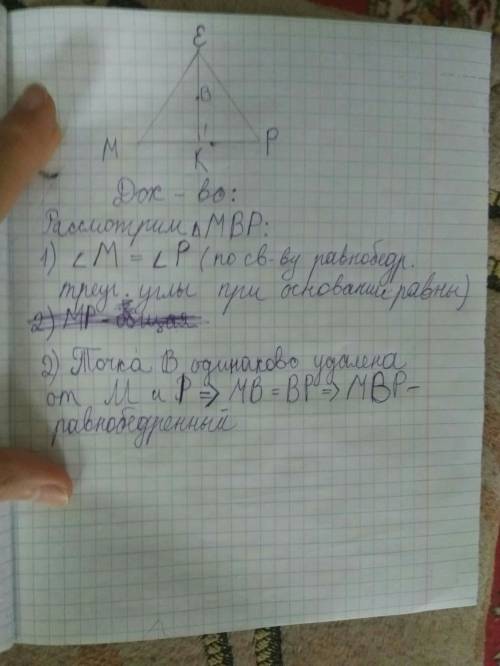 E
B
M K P
Док - во:
Рассмотрим ΔMBP:
1) ∠M = ∠P (по св-ву равнобедр.
треуг. углы при основании равны)
2) MP - общая
2) Точка B одинаково удалена
от M и P => MB = BP => MBP -
равнобедренный